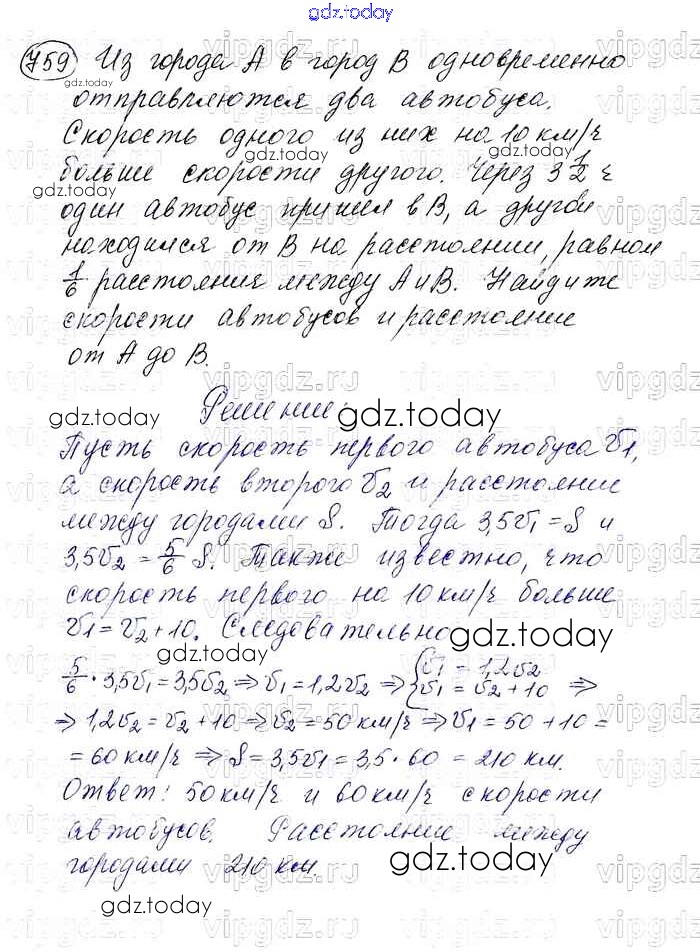 gdz.today
759 Из города А в город В одновременно
отправляются два автобуса.
Скорость одного из них на 10 км/ч
больше скорости другого. Через 3 1/2 ч
один автобус пришел в В, а другой
находился от В на расстоянии, равном
1/6 расстояния между А и В. Найдите
скорости автобусов и расстояние
от А до В.
Решение:
Пусть скорость первого автобуса v1,
а скорость второго v2 и расстояние
между городами S. Тогда 3,5v1 = S и
3,5v2 = 5/6 S. Также известно, что
скорость первого на 10 км/ч больше
v1 = v2 + 10. Следовательно
5/6 · 3,5v1 = 3,5v2 ⇒ v1 = 1,2v2 ⇒ { v1 = 1,2v2
v1 = v2 + 10 ⇒
⇒ 1,2v2 = v2 + 10 ⇒ v2 = 50 км/ч ⇒ v1 = 50 + 10 =
= 60 км/ч ⇒ S = 3,5v1 = 3,5 · 60 = 210 км.
Ответ: 50 км/ч и 60 км/ч скорости
автобусов. Расстояние между
городами 210 км.
gdz.today